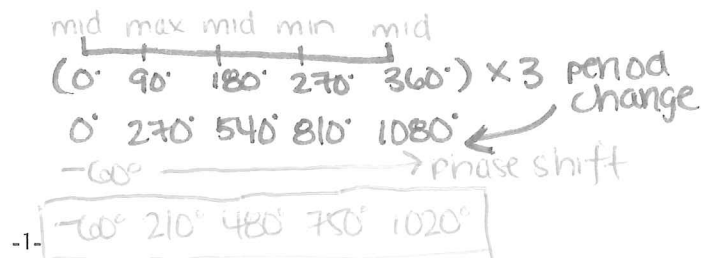 mid max mid min mid
(0° 90° 180° 270° 360°) × 3 period change
0° 270° 540° 810° 1080°
-60° → phase shift
-60° 210° 480° 750° 1020°
-1-